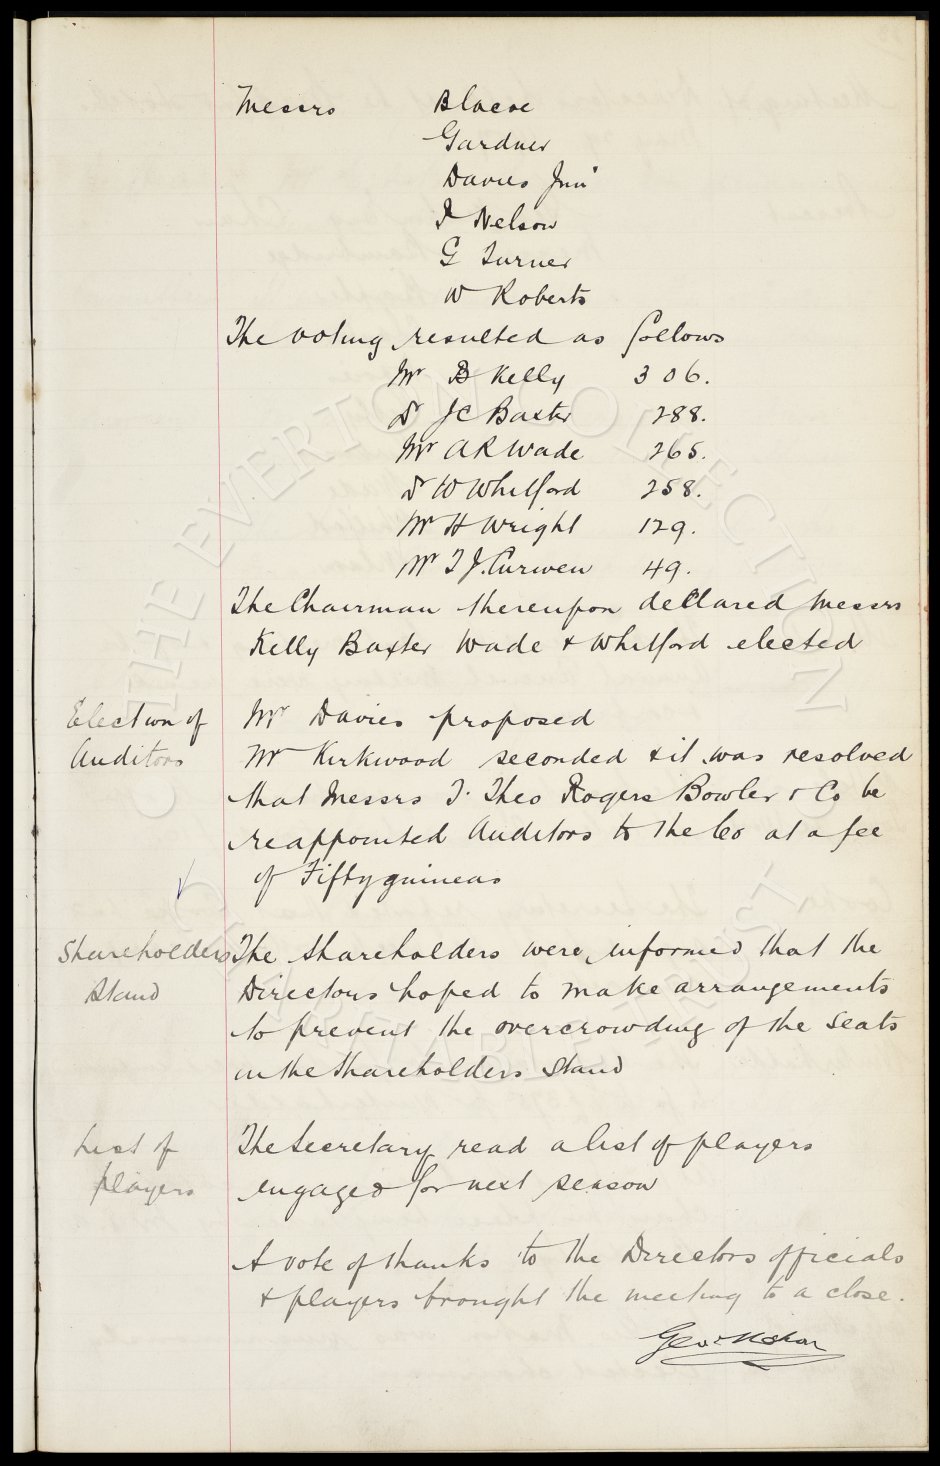 Messrs Blacoe
Gardner
Davies Junr
J Nelson
G Turner
W Roberts
The voting resulted as follows
Mr B Kelly 306.
Dr J C Baxter 288.
Mr A R Wade 265.
Dr W Whitford 258.
Mr H Wright 129.
Mr T J. Curwen 49.
The Chairman thereupon declared Messrs
Kelly Baxter Wade & Whitford elected
Election of Auditors
Mr Davies proposed
Mr Kirkwood seconded & it was resolved
that Messrs T. Theo Rogers Bowler & Co be
reappointed Auditors to the Co at a fee
of Fifty guineas
Shareholders Stand
The shareholders were informed that the
Directors hoped to make arrangements
to prevent the overcrowding of the seats
in the shareholders stand
List of players
The Secretary read a list of players
engaged for next season
A vote of thanks to the Directors officials
& players brought the meeting to a close.
THE EVERTON COLLECTION